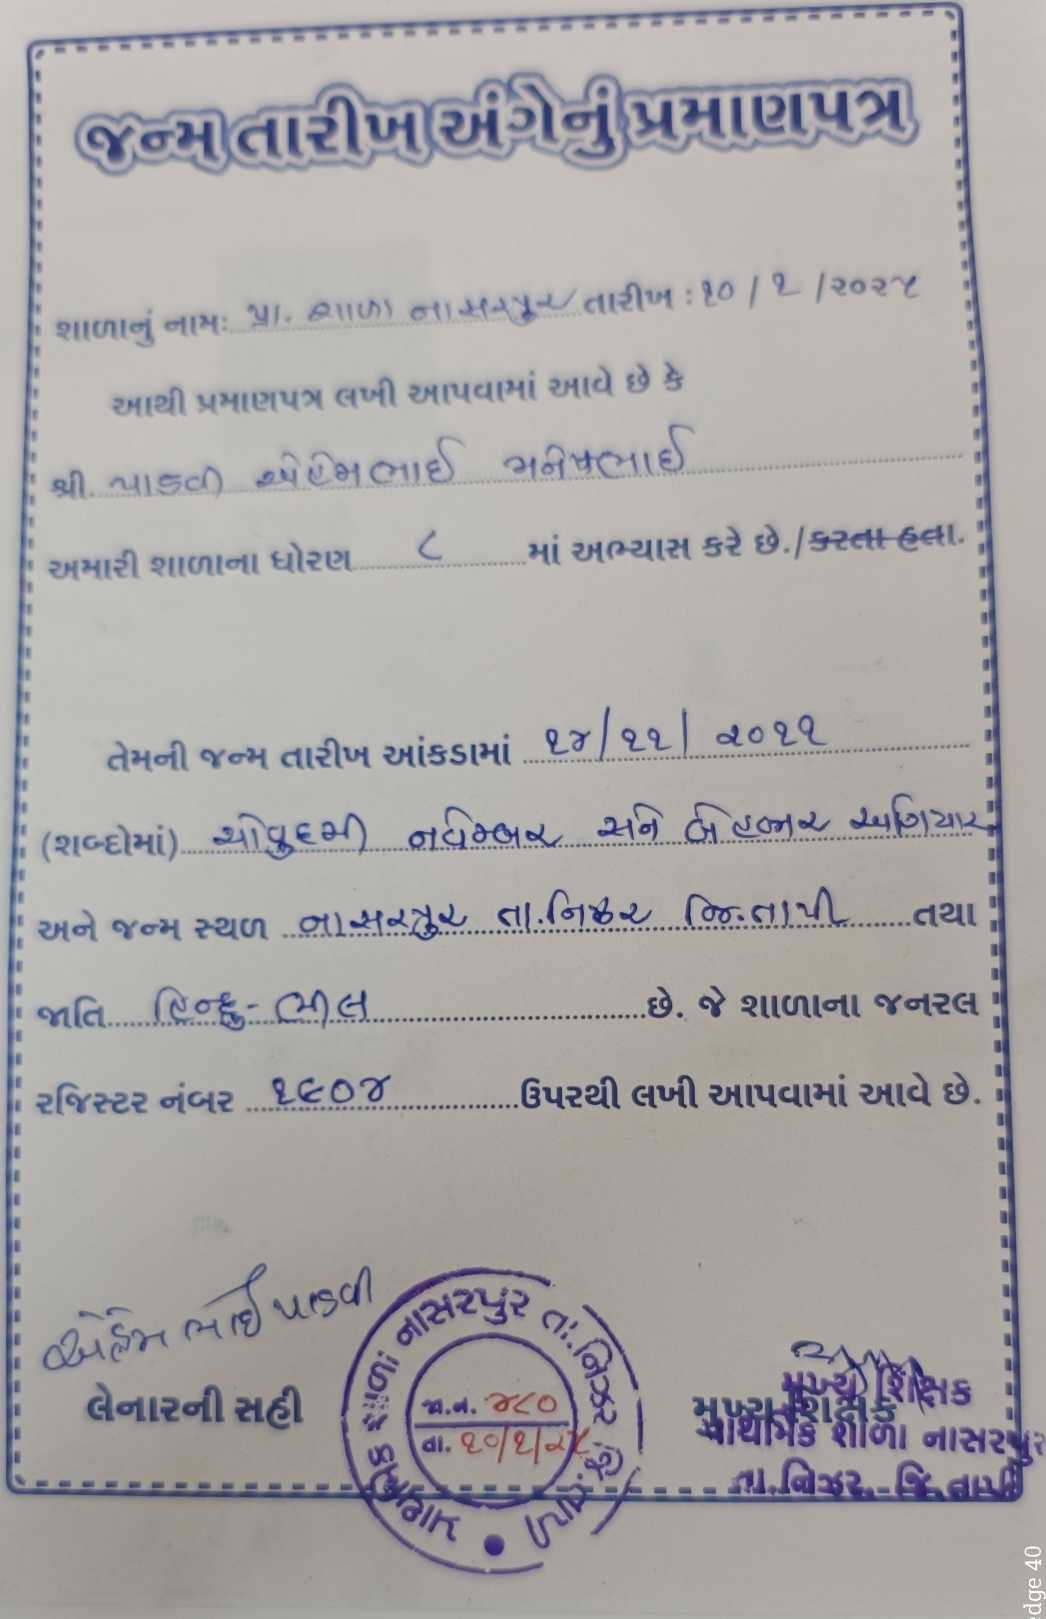 જન્મ તારીખ અંગેનું પ્રમાણપત્ર
શાળાનું નામઃ પ્રા. શાળા નાસરપુર તારીખ : ૧૦ / ૧ / ૨૦૨૫
આથી પ્રમાણપત્ર લખી આપવામાં આવે છે કે
શ્રી. પાડવી એહેમભાઈ મનેષભાઈ
અમારી શાળાના ધોરણ ૮ માં અભ્યાસ કરે છે./કરતા હતા.
તેમની જન્મ તારીખ આંકડામાં ૧૪/૧૧/૨૦૧૧
(શબ્દોમાં) ચૌવુદમી નવેમ્બર સને બે હજાર અગિયાર
અને જન્મ સ્થળ નાસરપુર તા.નિઝર જિ.તાપી તથા
જાતિ હિન્દુ - ભીલ છે. જે શાળાના જનરલ
રજિસ્ટર નંબર ૧૯૦૪ ઉપરથી લખી આપવામાં આવે છે.
એહેમભાઈ પાડવી
લેનારની સહી
પ્રાથમિક શાળા નાસરપુર તા. નિઝર જિ. તાપી
જા.નં. ૪૮૦
તા. ૧૦/૧/૨૫
મુખ્ય શિક્ષક
મુખ્ય શિક્ષક
પ્રાથમિક શાળા નાસરપુર
તા. નિઝર, જિ. તાપી
edge 40